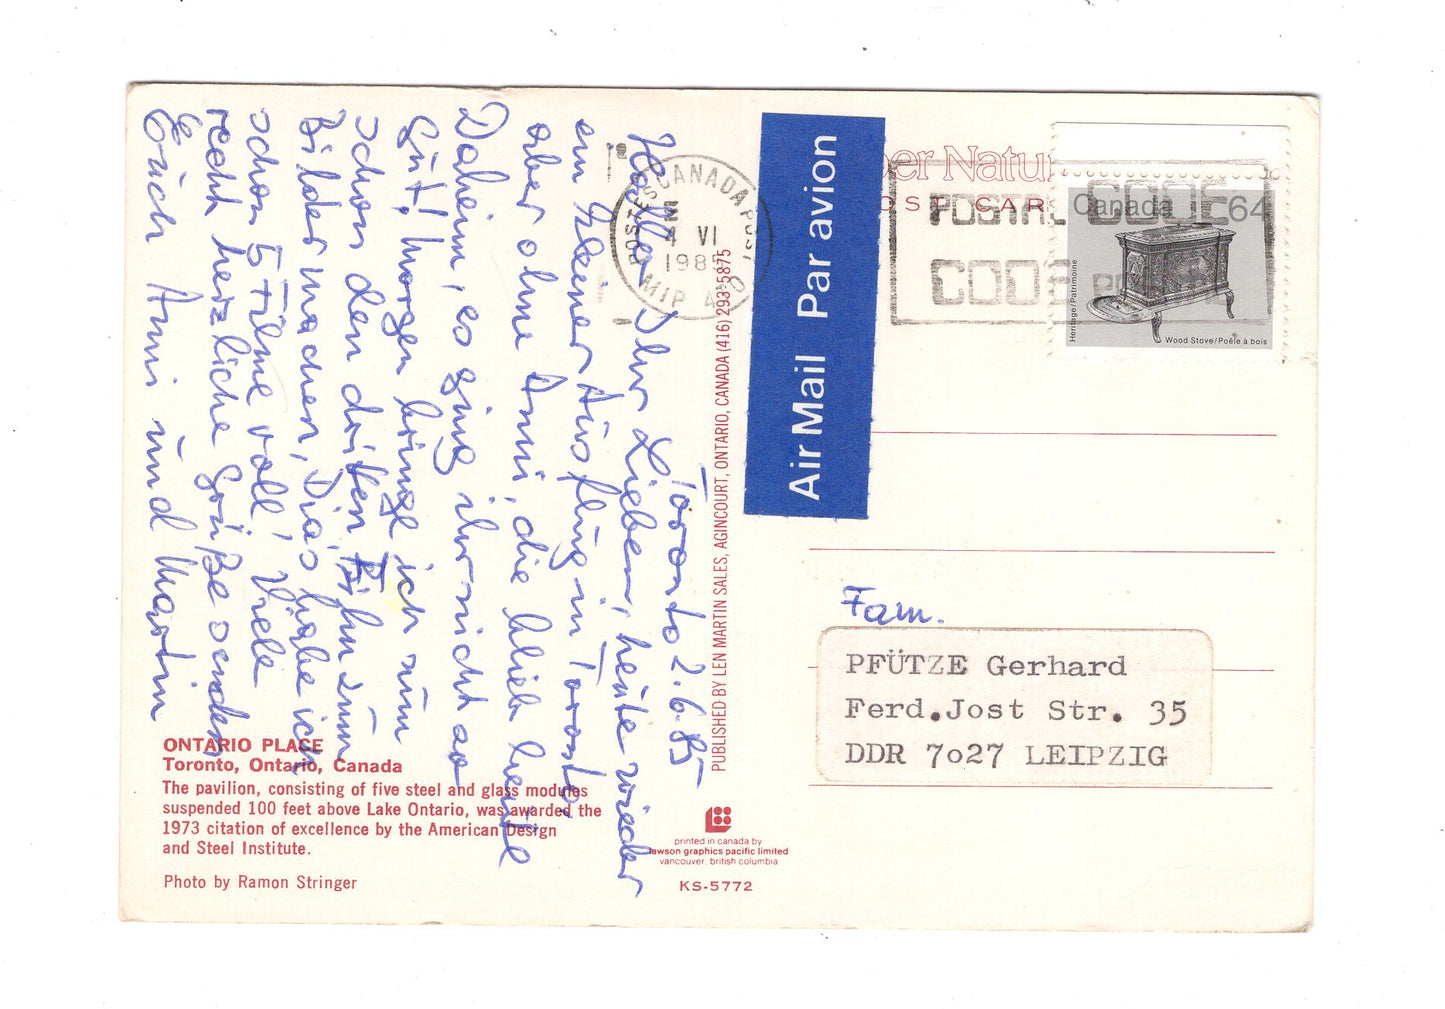 Toronto 2.6.85
Hallo Ihr Lieben, heute wieder
ein kleiner Ausflug in Toronto,
aber ohne Anni, die blieb heute
Daheim, es ging ihr nicht so
Gut! Morgen bringe ich nun
schon den dritten Film zum
Bilder machen, Dia's habe ich
schon 5 Filme voll! Viele
recht herzliche Grüße senden
Euch Anni und Martin
ONTARIO PLACE
Toronto, Ontario, Canada
The pavilion, consisting of five steel and glass modules
suspended 100 feet above Lake Ontario, was awarded the
1973 citation of excellence by the American Design
and Steel Institute.
Photo by Ramon Stringer
PUBLISHED BY LEN MARTIN SALES, AGINCOURT, ONTARIO, CANADA (416) 293-5875
printed in canada by
lawson graphics pacific limited
vancouver, british columbia
KS-5772
CANADA
POSTES POST
4 VI
1985
MIP
Air Mail Par avion
POST CAR
POSTAL CODE
CODE
Canada 64
Heritage/Patrimoine
Wood Stove/Poêle à bois
Fam.
PFÜTZE Gerhard
Ferd.Jost Str. 35
DDR 7o27 LEIPZIG